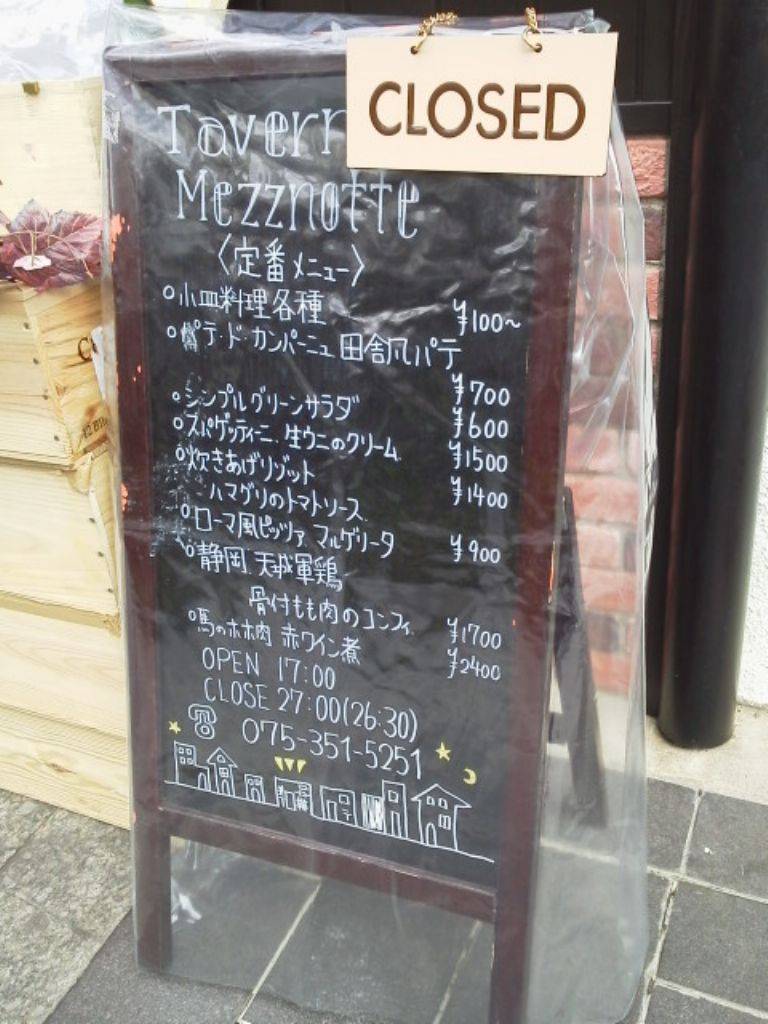 CLOSED
Tavern
Mezznotte
〈定番メニュー〉
○小皿料理各種 ¥100~
○パテ・ド・カンパーニュ 田舎風パテ
¥700
○シンプルグリーンサラダ ¥600
○スパゲッティーニ、生ウニのクリーム ¥1500
○炊きあげリゾット ¥1400
ハマグリのトマトソース
○ローマ風ピッツァ マルゲリータ ¥900
○静岡、天城軍鶏
骨付もも肉のコンフィ ¥1700
○馬のホホ肉 赤ワイン煮 ¥2400
OPEN 17:00
CLOSE 27:00(26:30)
075-351-5251